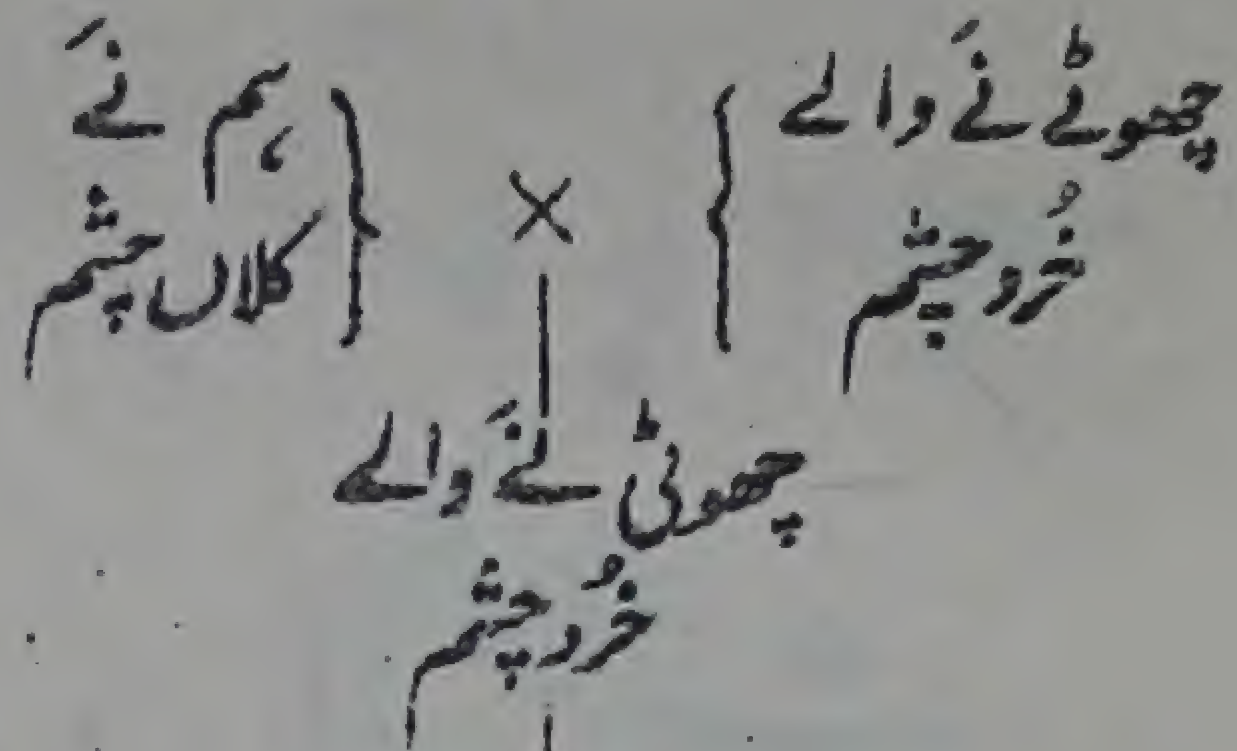 چھوٹے نَے والے
خُرد چشم
×
ہم نَے
کلاں چشم
چھوٹی نَے والے
خُرد چشم